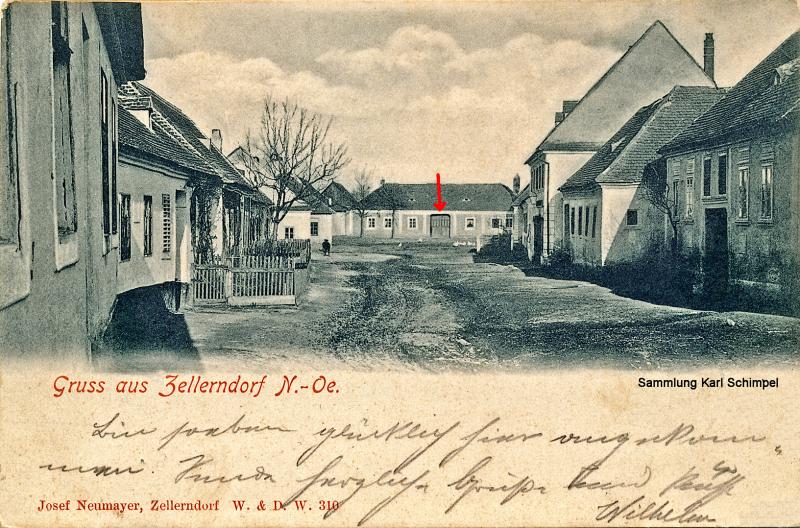 Gruss aus Zellerndorf N.-Oe.
Sammlung Karl Schimpel
Bin soeben glücklich hier angekom-
men. Sende herzliche Grüße und Kuß
Wilhelm
Josef Neumayer, Zellerndorf W. & D. W. 310